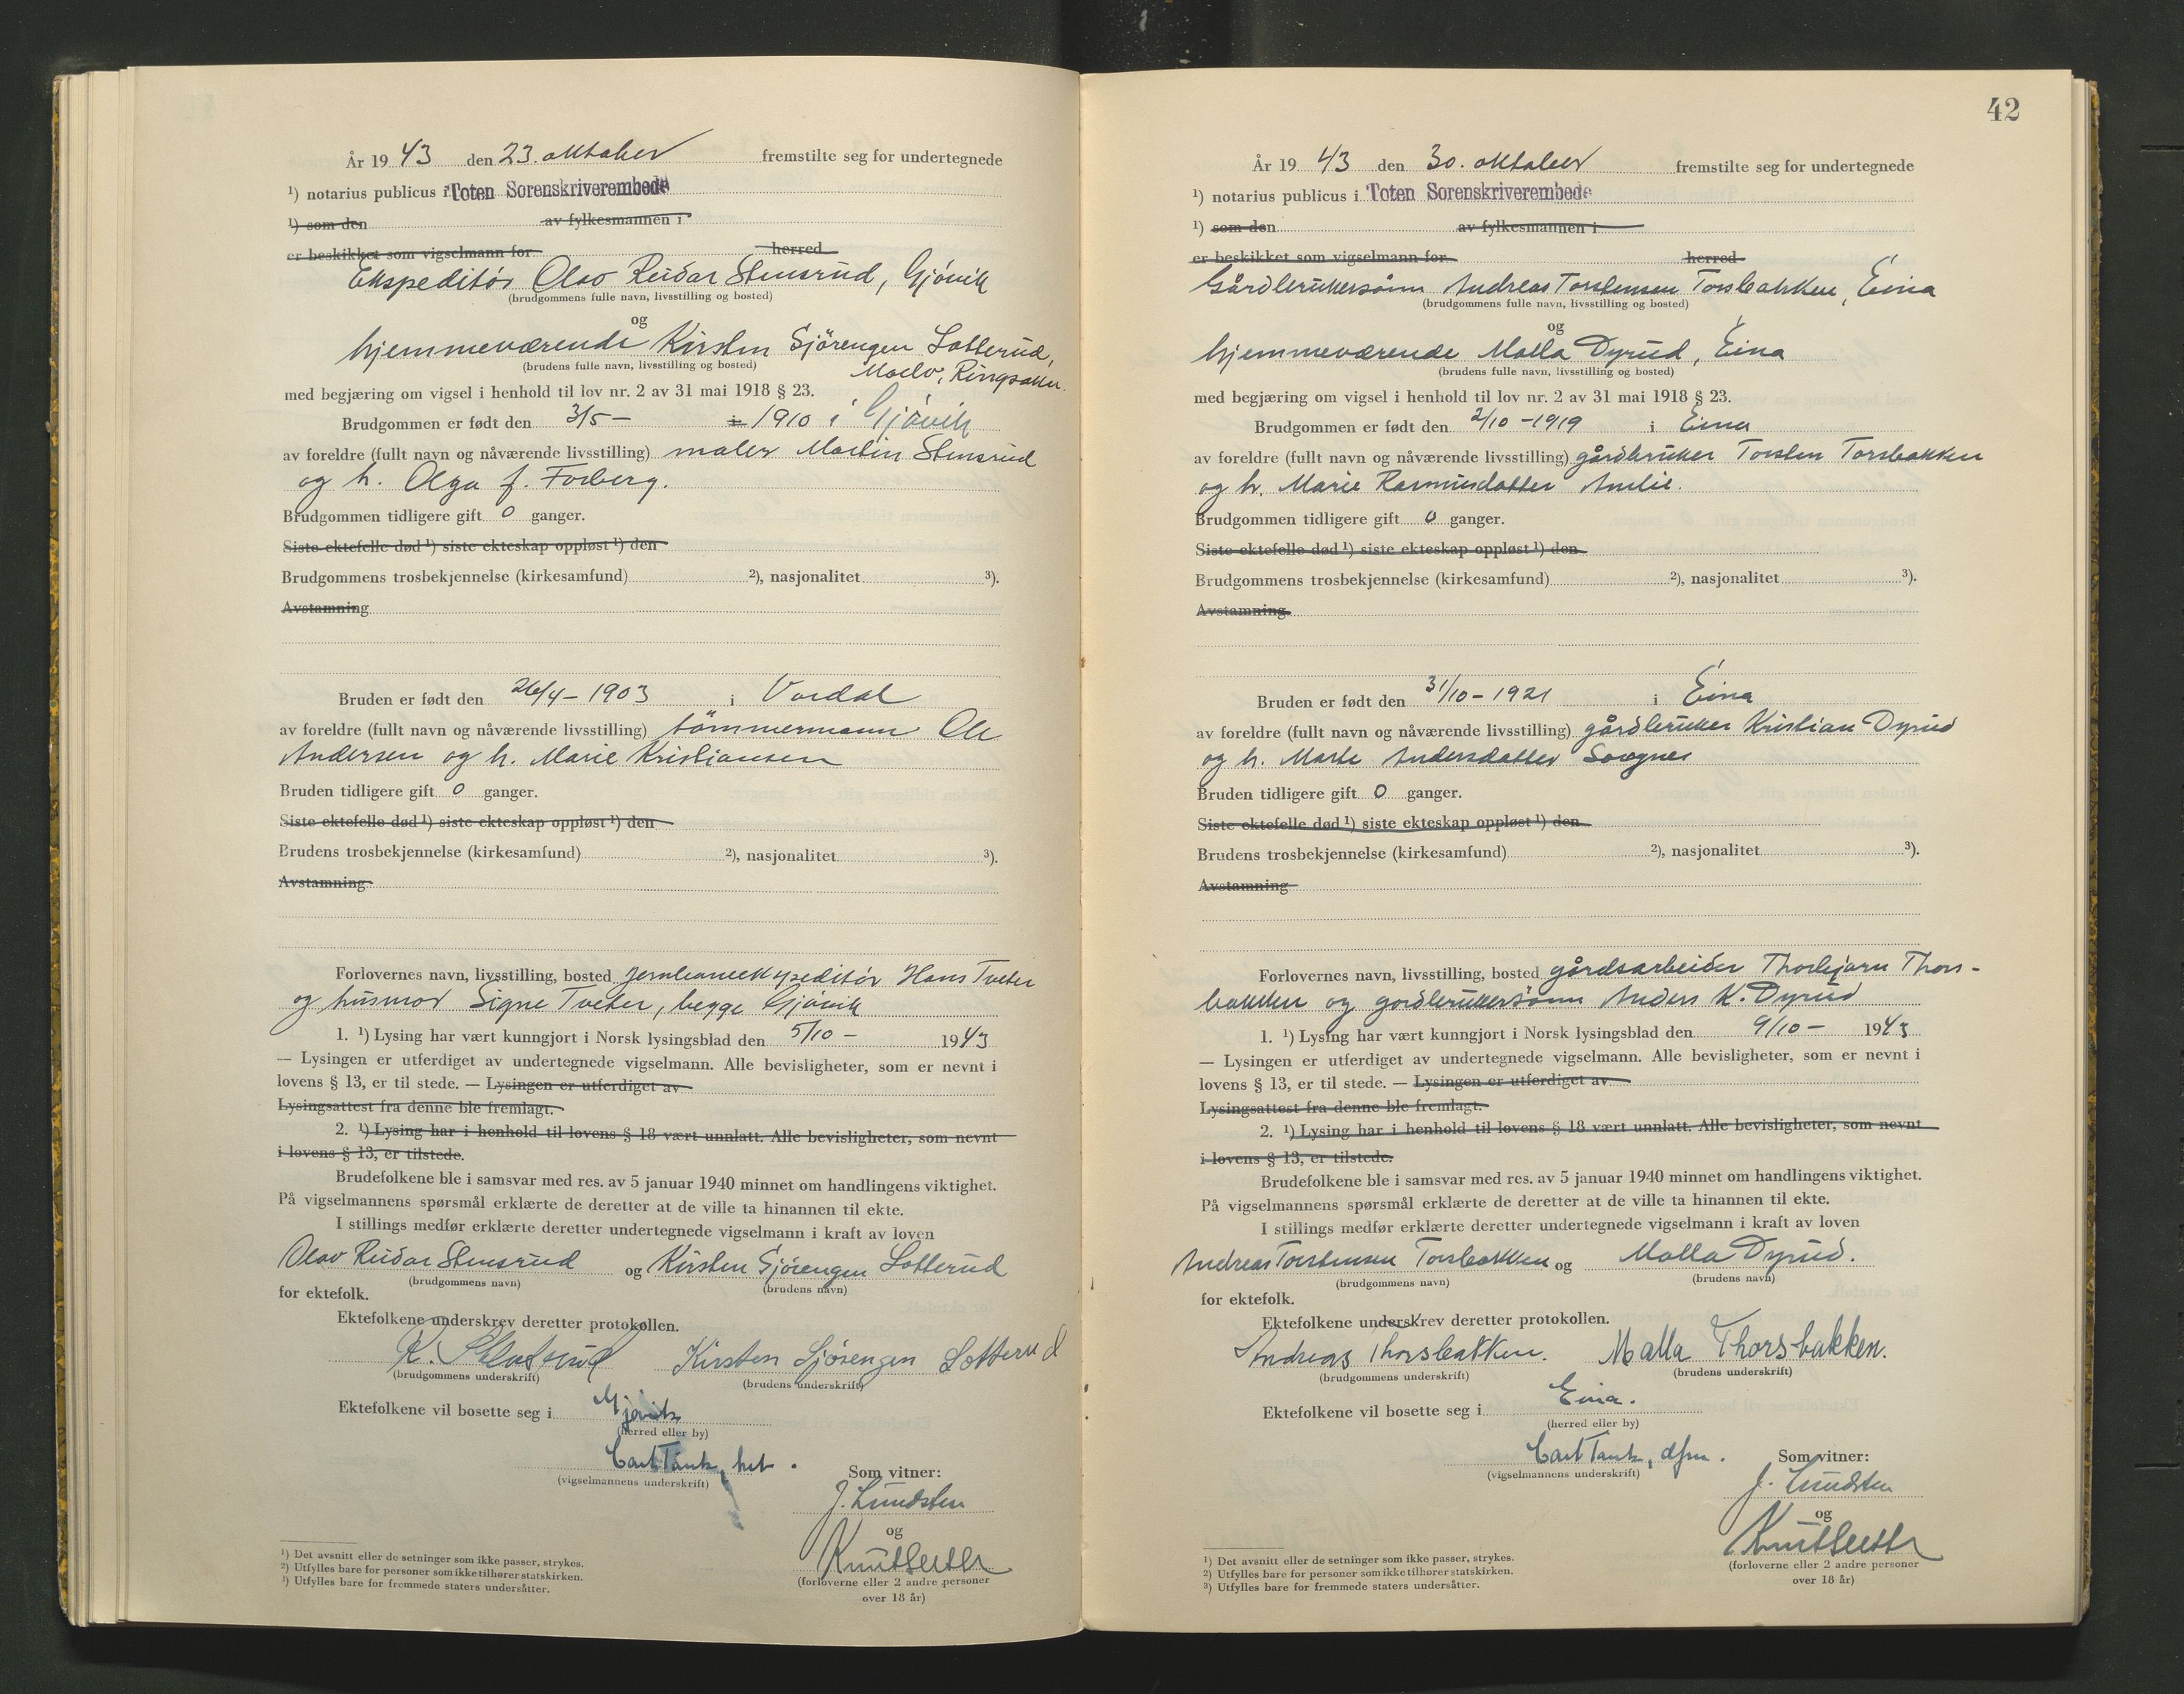 År 1943 den 23. oktober fremstilte seg for undertegnede
¹) notarius publicus i Toten Sorenskriverembede
¹) som den av fylkesmannen i
er beskikket som vigselmann for herred
Ekspeditör Olav Reidar Stensrud, Gjövik
(brudgommens fulle navn, livsstilling og bosted)
og
hjemmeværende Kirsten Sjörengen Lotterud,
(brudens fulle navn, livsstilling og bosted)
Moelv, Ringsaker.
med begjæring om vigsel i henhold til lov nr. 2 av 31 mai 1918 § 23.
Brudgommen er født den 3/5 – i 1910 i Gjövik
av foreldre (fullt navn og nåværende livsstilling) maler Martin Stensrud
og h. Olga f. Forberg.
Brudgommen tidligere gift 0 ganger.
Siste ektefelle død ¹) siste ekteskap oppløst ¹) den
Brudgommens trosbekjennelse (kirkesamfund) ²), nasjonalitet ³).
Avstamning
Bruden er født den 26/4 – 1903 i Vardal
av foreldre (fullt navn og nåværende livsstilling) tömmermann Ole
Andersen og h. Marie Kristiansen
Bruden tidligere gift 0 ganger.
Siste ektefelle død ¹) siste ekteskap oppløst ¹) den
Brudens trosbekjennelse (kirkesamfund) ²), nasjonalitet ³).
Avstamning
Forlovernes navn, livsstilling, bosted jernbaneekspeditör Hans Tveter
og husmor Signe Tveter, begge Gjövik
1. ¹) Lysing har vært kunngjort i Norsk lysingsblad den 5/10 – 1943
— Lysingen er utferdiget av undertegnede vigselmann. Alle bevisligheter, som er nevnt i
lovens § 13, er til stede. — Lysingen er utferdiget av
Lysingsattest fra denne ble fremlagt.
2. ¹) Lysing har i henhold til lovens § 18 vært unnlatt. Alle bevisligheter, som nevnt
i lovens § 13, er tilstede.
Brudefolkene ble i samsvar med res. av 5 januar 1940 minnet om handlingens viktighet.
På vigselmannens spørsmål erklærte de deretter at de ville ta hinannen til ekte.
I stillings medfør erklærte deretter undertegnede vigselmann i kraft av loven
Olav Reidar Stensrud og Kirsten Sjörengen Lotterud
(brudgommens navn) (brudens navn)
for ektefolk.
Ektefolkene underskrev deretter protokollen.
R. Stensrud Kirsten Sjörengen Lotterud
(brudgommens underskrift) (brudens underskrift)
Ektefolkene vil bosette seg i Gjövik
(herred eller by)
Carl Tank,
(vigselmannens underskrift)
Som vitner:
J. Lundsten
og
(forloverne eller 2 andre personer
over 18 år)
¹) Det avsnitt eller de setninger som ikke passer, strykes.
²) Utfylles bare for personer som ikke tilhører statskirken.
³) Utfylles bare for fremmede staters undersåtter.
42
År 1943 den 30. oktober fremstilte seg for undertegnede
¹) notarius publicus i Toten Sorenskriverembede
¹) som den av fylkesmannen i
er beskikket som vigselmann for herred
Gårdbrukersönn Andreas Torstensen Torsbakken, Eina
(brudgommens fulle navn, livsstilling og bosted)
og
hjemmeværende Malla Dyrud, Eina
(brudens fulle navn, livsstilling og bosted)
med begjæring om vigsel i henhold til lov nr. 2 av 31 mai 1918 § 23.
Brudgommen er født den 2/10 – 1919 i Eina
av foreldre (fullt navn og nåværende livsstilling) gårdbruker Torsten Torsbakken
og h. Marie Rasmusdatter
Brudgommen tidligere gift 0 ganger.
Siste ektefelle død ¹) siste ekteskap oppløst ¹) den
Brudgommens trosbekjennelse (kirkesamfund) ²), nasjonalitet ³).
Avstamning
Bruden er født den 31/10 – 1921 i Eina
av foreldre (fullt navn og nåværende livsstilling) gårdbruker Kristian Dyrud
og h. Marte Andersdatter Sovgnes
Bruden tidligere gift 0 ganger.
Siste ektefelle død ¹) siste ekteskap oppløst ¹) den
Brudens trosbekjennelse (kirkesamfund) ²), nasjonalitet ³).
Avstamning
Forlovernes navn, livsstilling, bosted gårdsarbeider Thorbjørn Thors-
bakken og gårdbrukersönn Anders K. Dyrud
1. ¹) Lysing har vært kunngjort i Norsk lysingsblad den 9/10 – 1943
— Lysingen er utferdiget av undertegnede vigselmann. Alle bevisligheter, som er nevnt i
lovens § 13, er til stede. — Lysingen er utferdiget av
Lysingsattest fra denne ble fremlagt.
2. ¹) Lysing har i henhold til lovens § 18 vært unnlatt. Alle bevisligheter, som nevnt
i lovens § 13, er tilstede.
Brudefolkene ble i samsvar med res. av 5 januar 1940 minnet om handlingens viktighet.
På vigselmannens spørsmål erklærte de deretter at de ville ta hinannen til ekte.
I stillings medfør erklærte deretter undertegnede vigselmann i kraft av loven
Andreas Torstensen Torsbakken og Malla Dyrud.
(brudgommens navn) (brudens navn)
for ektefolk.
Ektefolkene underskrev deretter protokollen.
Andreas Thorsbakken. Malla Thorsbakken.
(brudgommens underskrift) (brudens underskrift)
Ektefolkene vil bosette seg i Eina.
(herred eller by)
Carl Tank, dfm.
(vigselmannens underskrift)
Som vitner:
J. Lundsten
og
(forloverne eller 2 andre personer
over 18 år)
¹) Det avsnitt eller de setninger som ikke passer, strykes.
²) Utfylles bare for personer som ikke tilhører statskirken.
³) Utfylles bare for fremmede staters undersåtter.